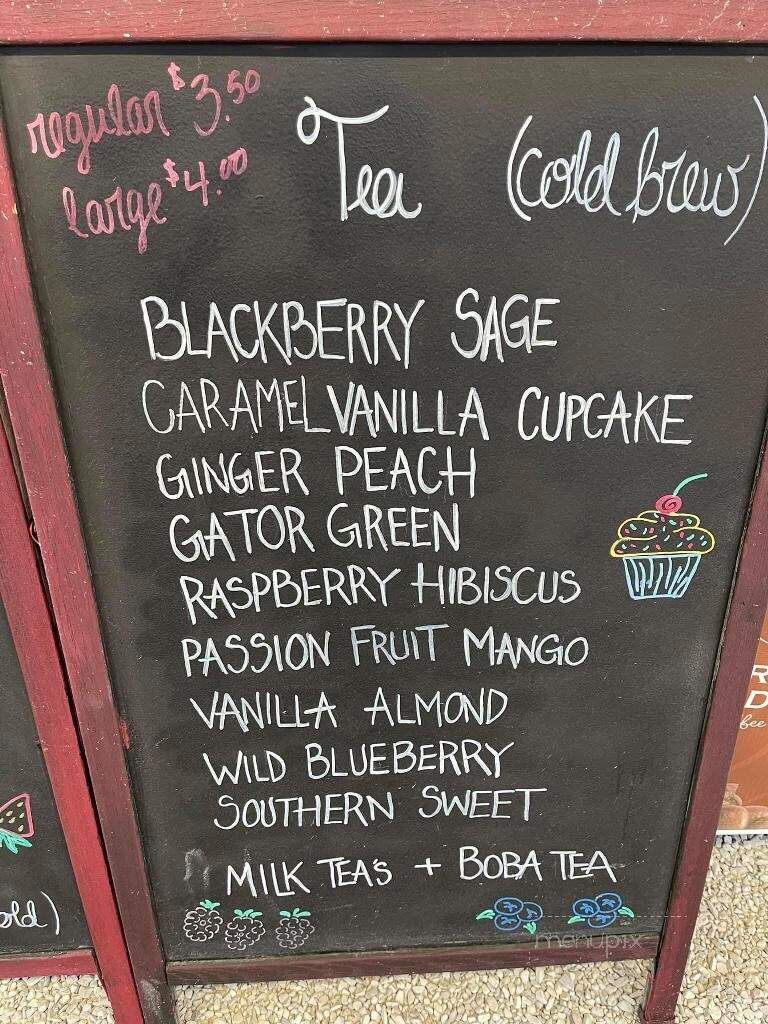 regular $3.50
large $4.00
Tea (cold brew)
BLACKBERRY SAGE
CARAMEL VANILLA CUPCAKE
GINGER PEACH
GATOR GREEN
RASPBERRY HIBISCUS
PASSION FRUIT MANGO
VANILLA ALMOND
WILD BLUEBERRY
SOUTHERN SWEET
MILK TEA'S + BOBA TEA
menupix